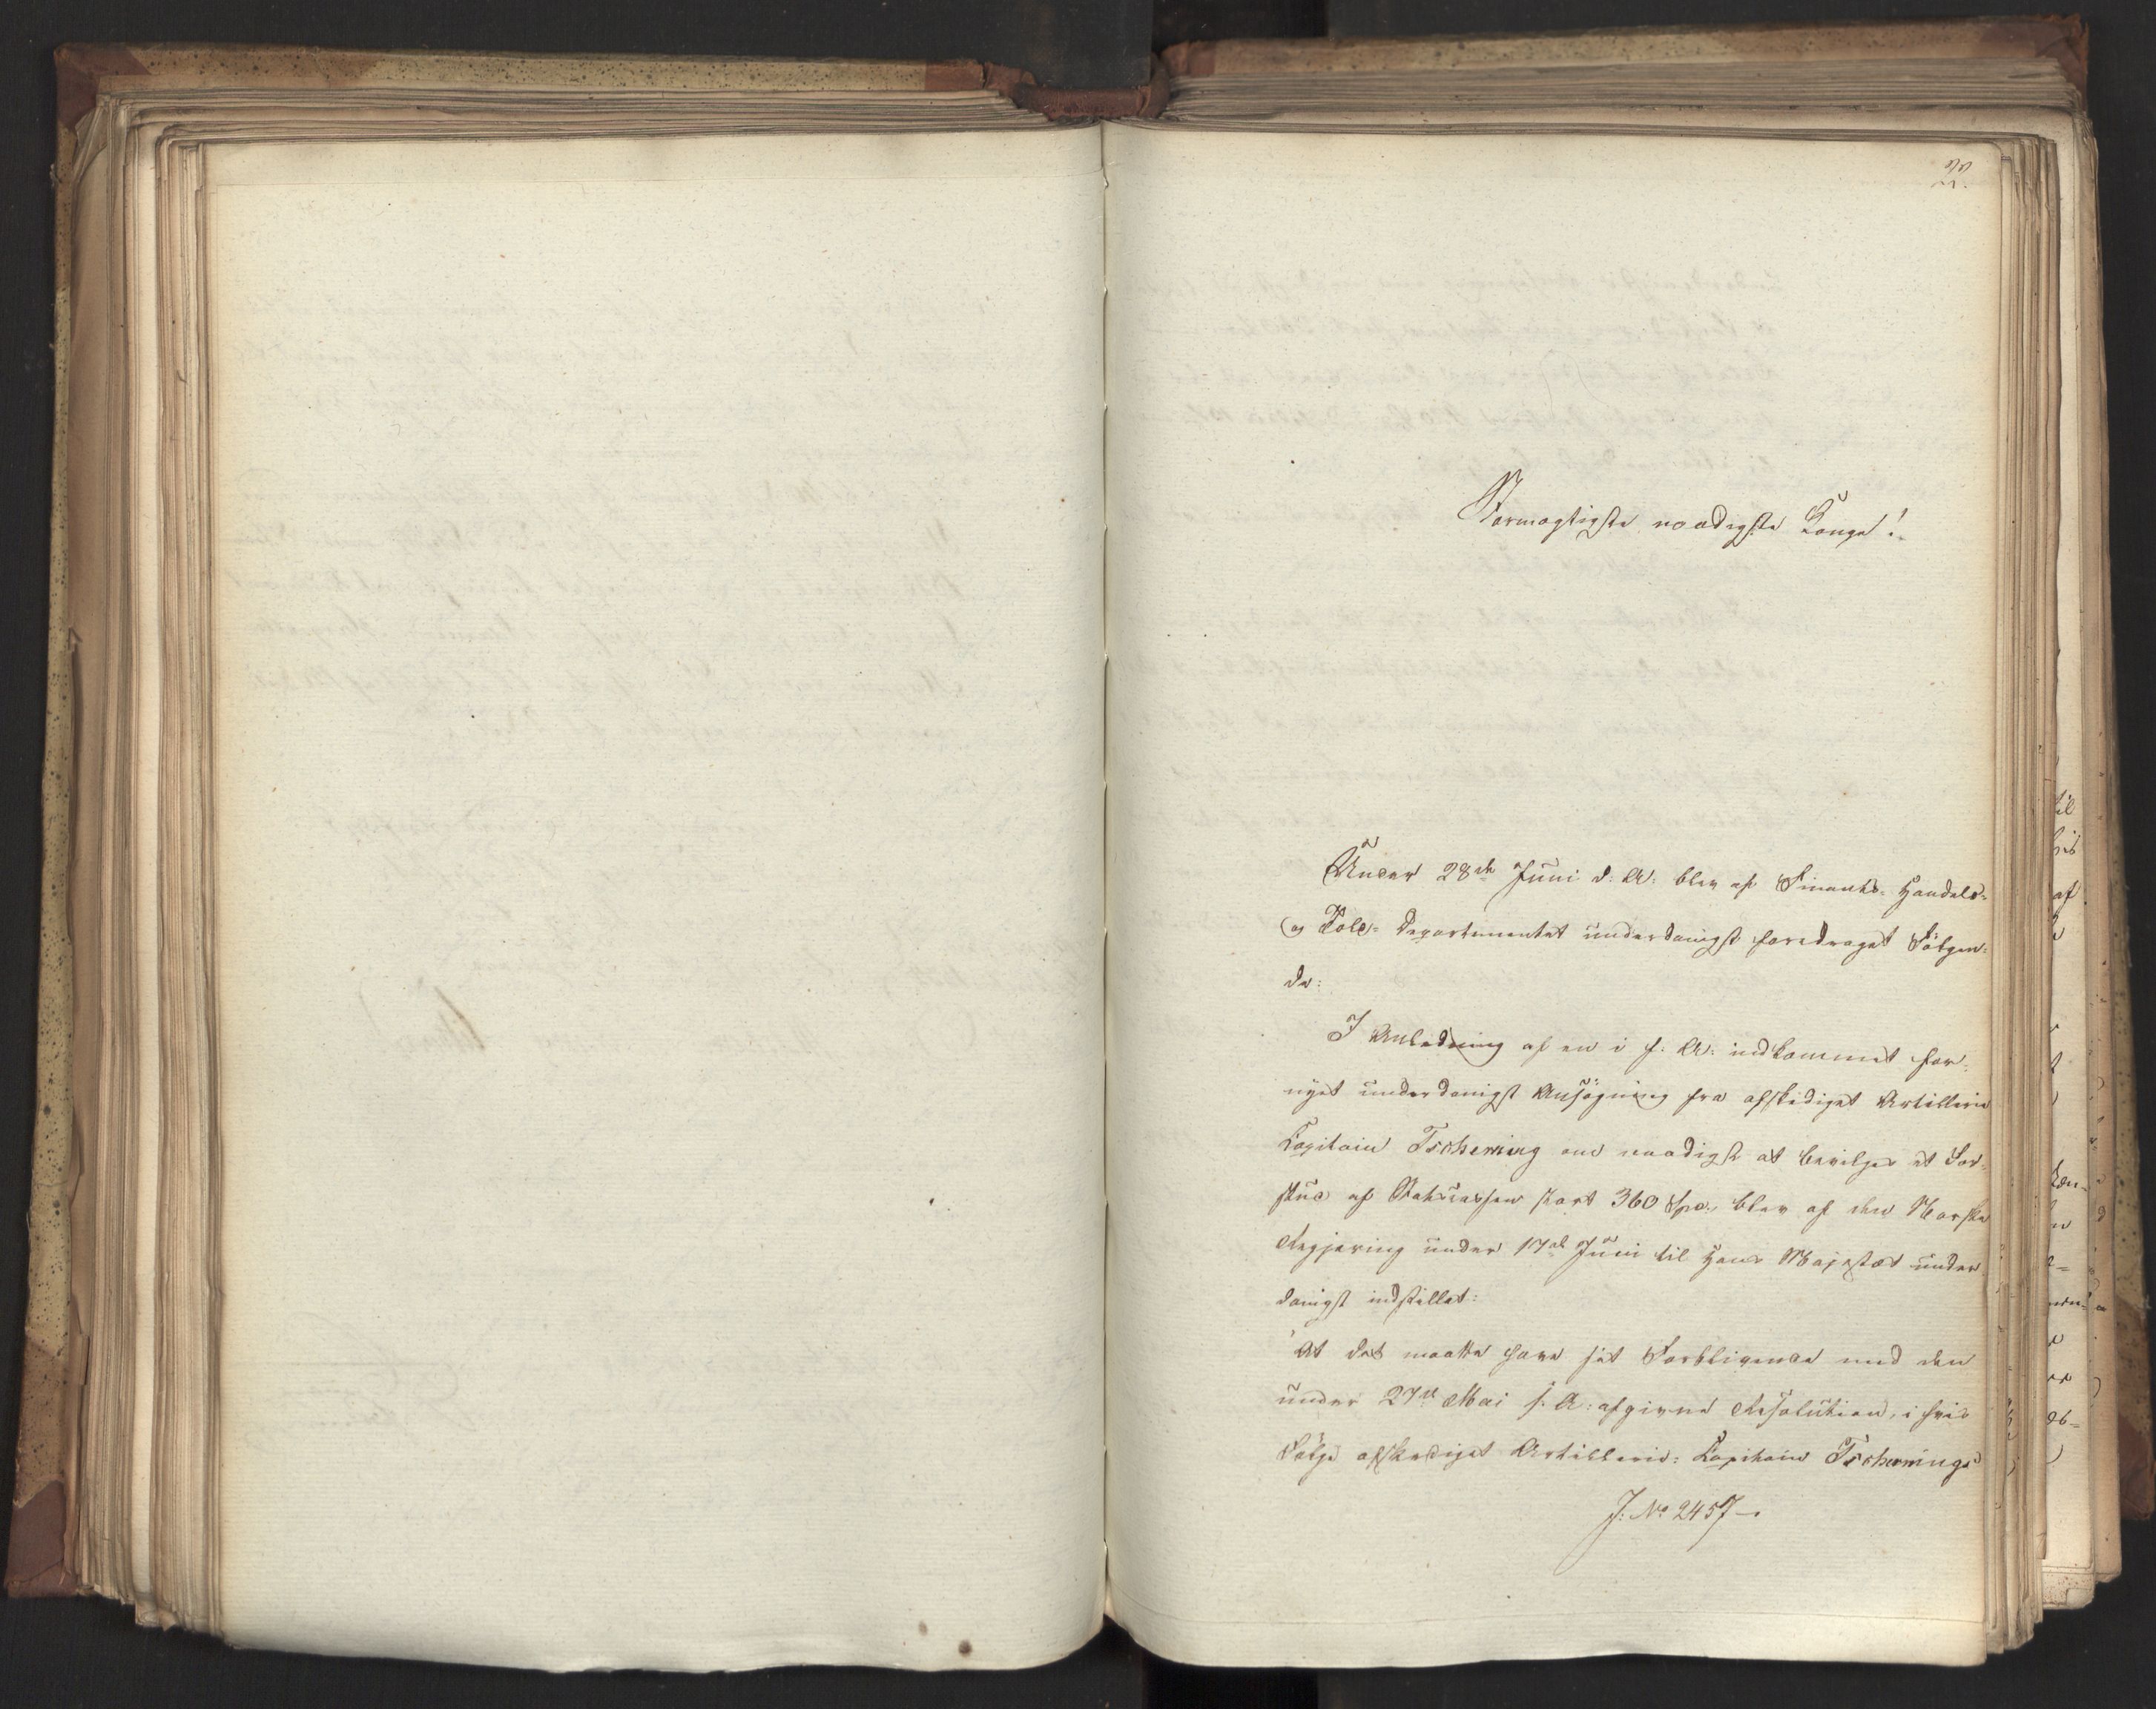 22.
Stormægtigste naadigste Konge!
Under 28de Juni d: A: blev af Finants- Handels-
og Told- Departementet underdanigst foredraget Følgen-
de:
I Anledning af en i f: A: indkommet for-
nyet underdanigst Ansøgning fra afskediget Artillerie
Capitain Tscherning om naadigst at bevilges et For-
skud af Statscassen stort 360 Spd., blev af den Norske
Regjering under 17de Juni til Hans Majestæt under
danigst indstillet:
At det maatte have sit Forblivende med den
under 27de Mai f: A: afgivne Resolution, i hvis
Følge afskediget Artillerie- Capitain Tschernings
J: No 2457-